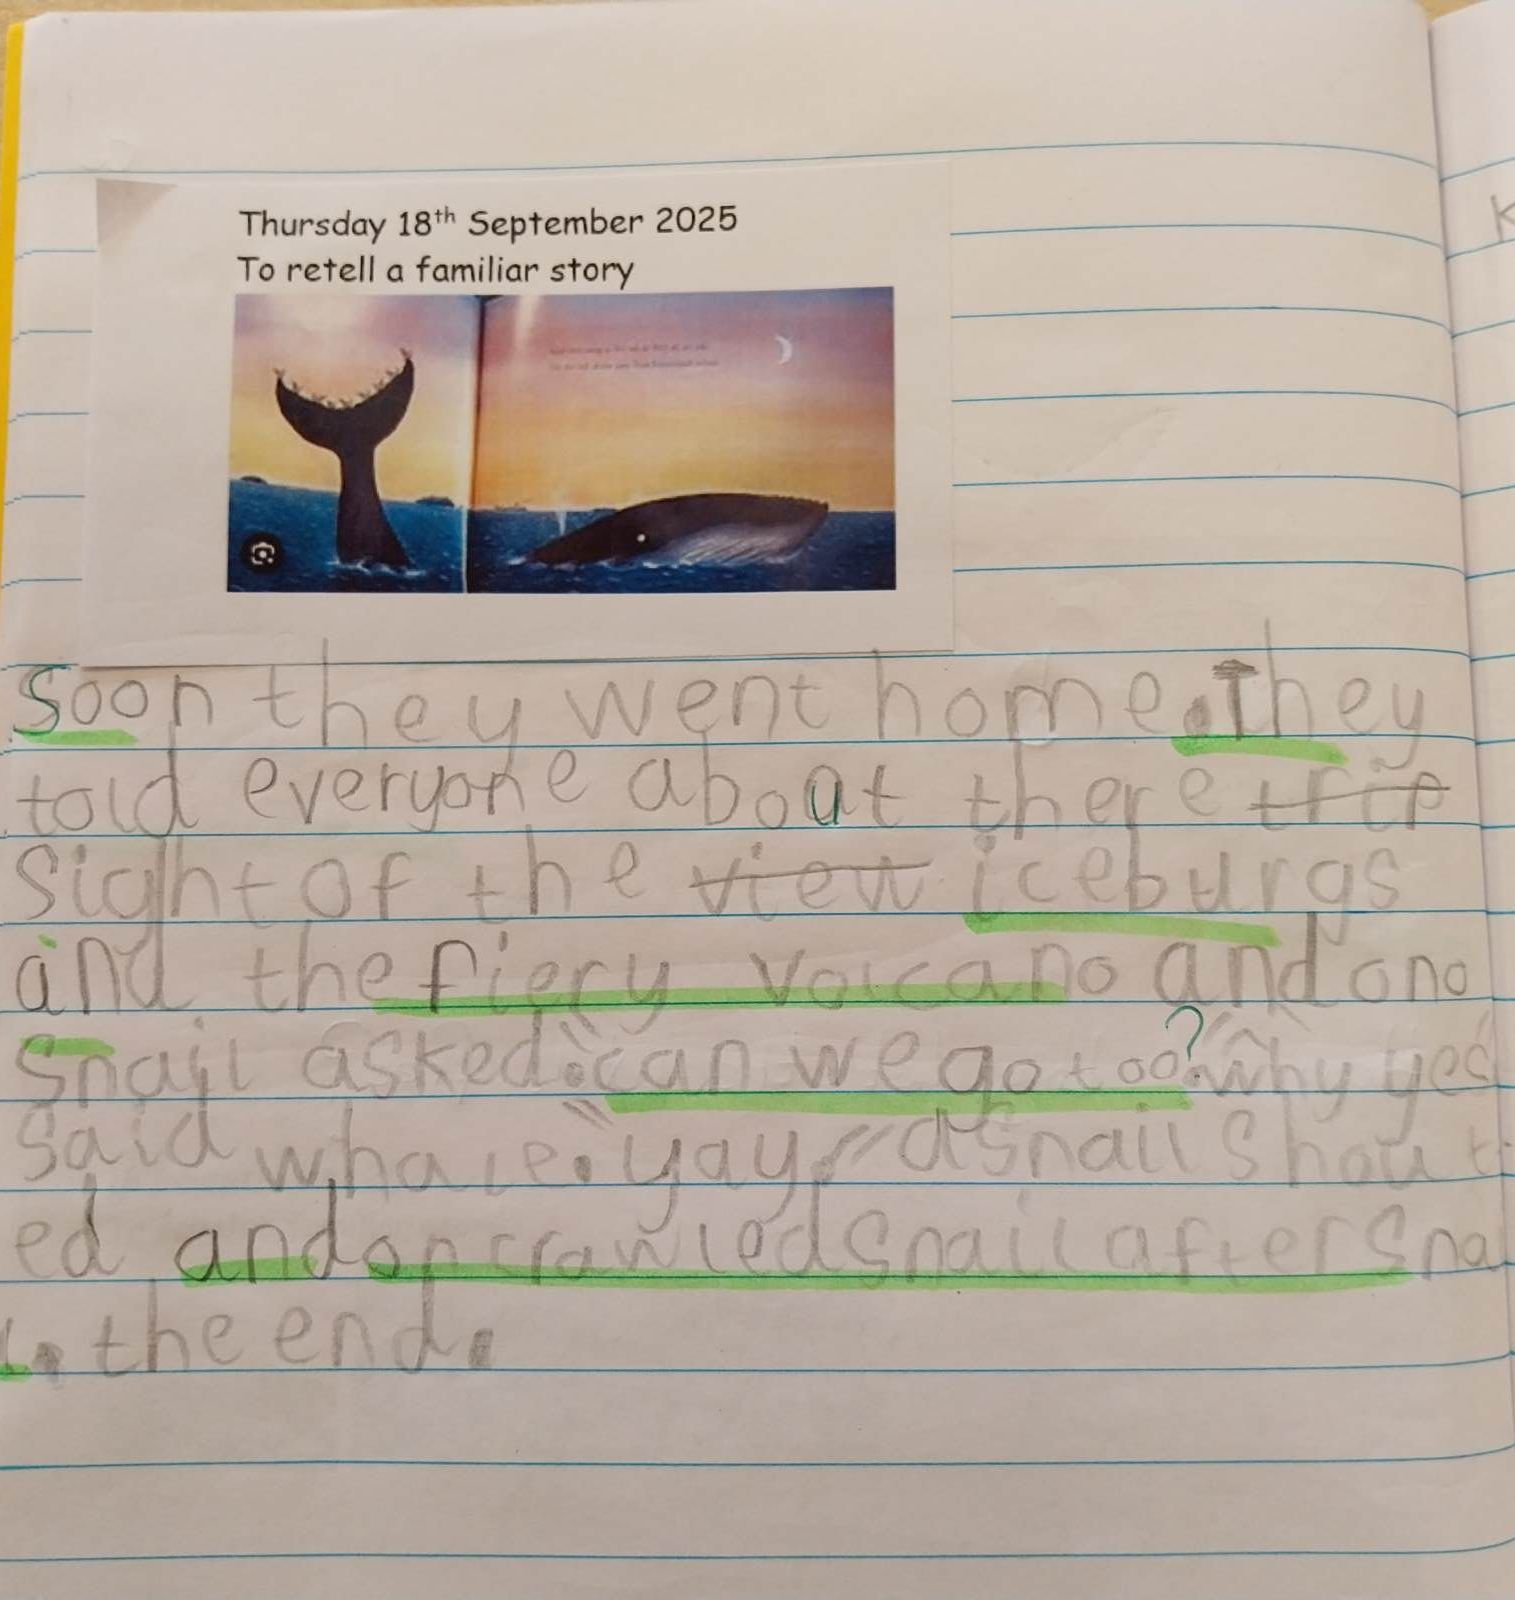 Thursday 18th September 2025
To retell a familiar story
Soon they went home. They
told everyone about there trip
sight of the view iceburgs
and the fiery volcano and ono
snail asked. "can we go too?" "why yes
said whale." yay," a snail shout
ed and on crawled snail after sna
l. the end.